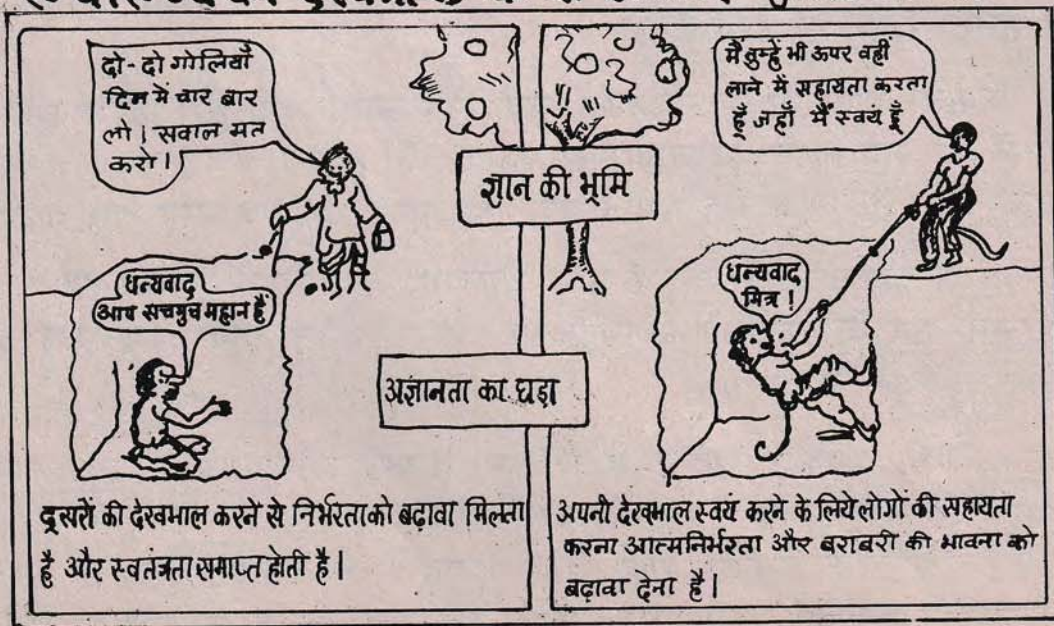 दो-दो गोलियाँ
दिन में चार बार
लो। सवाल मत
करो!
धन्यवाद
आप सचमुच महान हैं
ज्ञान की भूमि
अज्ञानता का घड़ा
मैं तुम्हें भी ऊपर वहीं
लाने में सहायता करता
हूँ जहाँ मैं स्वयं हूँ
धन्यवाद
मित्र!
दूसरों की देखभाल करने से निर्भरता को बढ़ावा मिलता
है और स्वतंत्रता समाप्त होती है।
अपनी देखभाल स्वयं करने के लिये लोगों की सहायता
करना आत्मनिर्भरता और बराबरी की भावना को
बढ़ावा देना है।